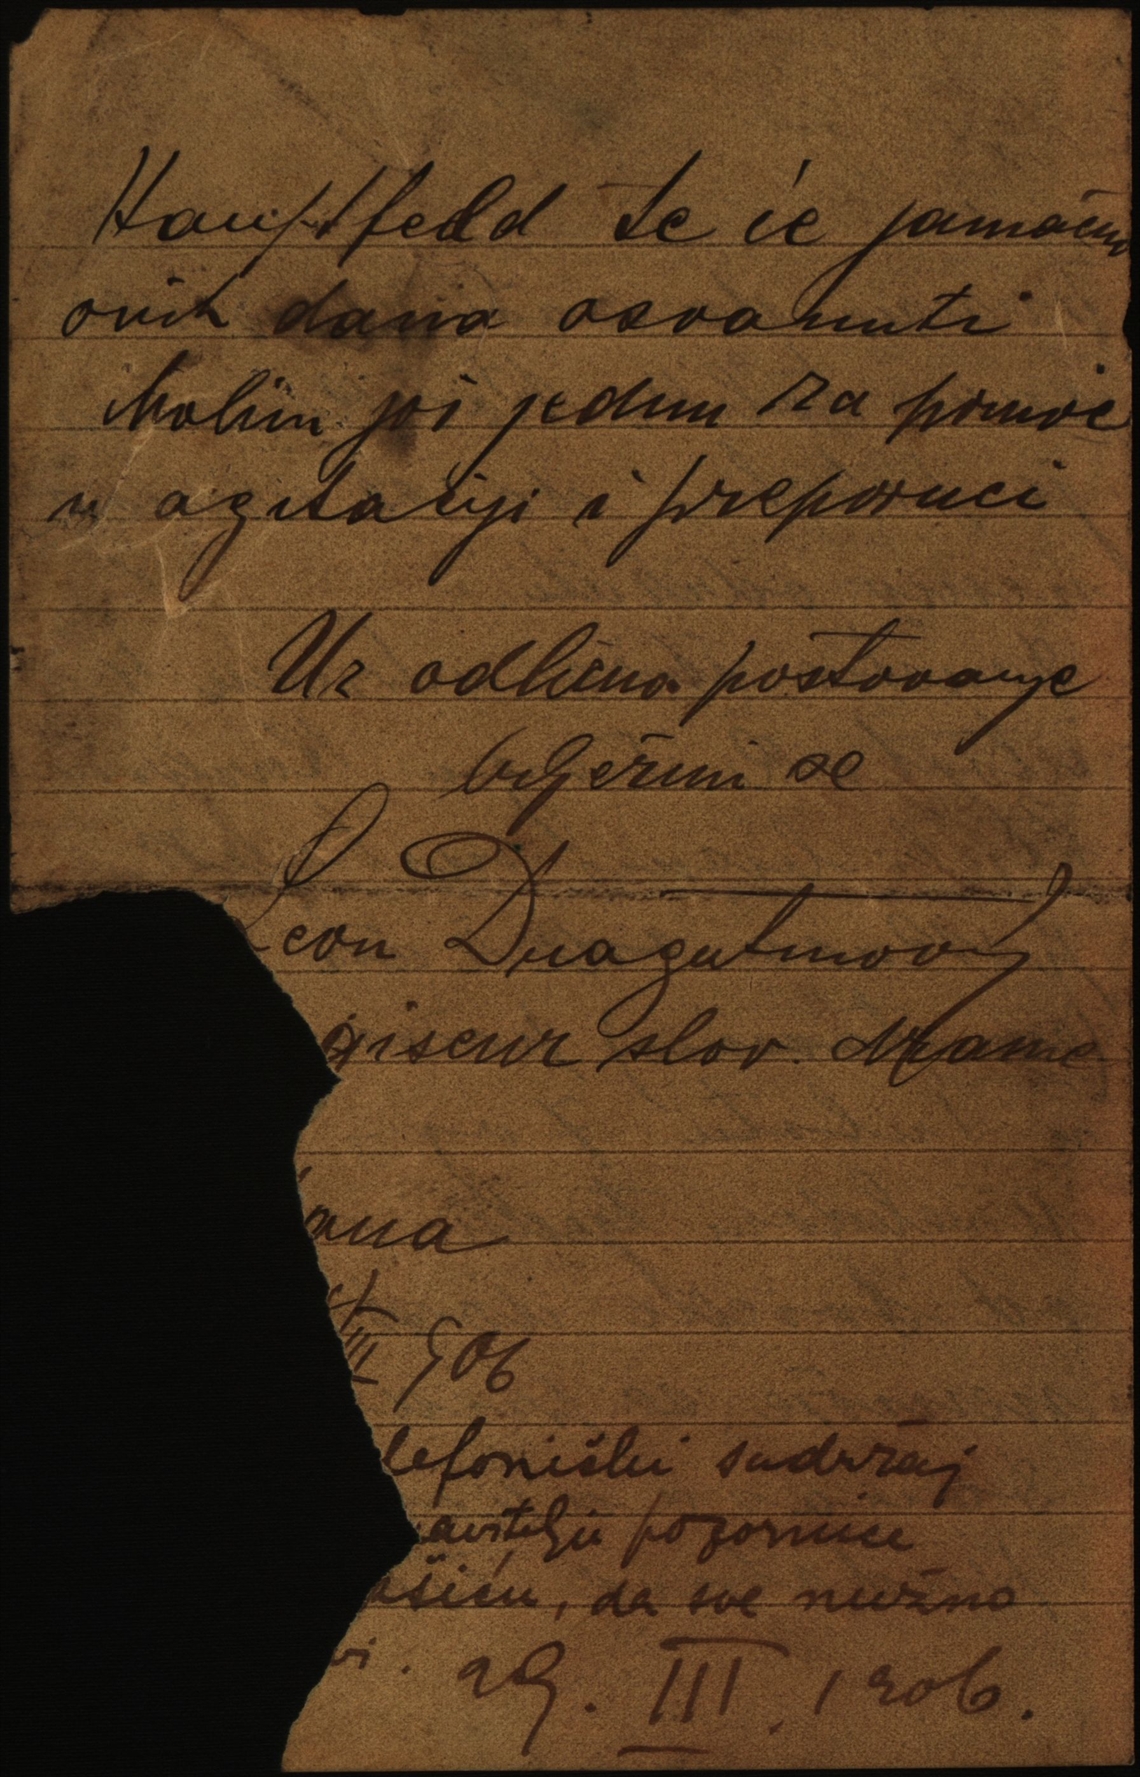 Hauptfeld te će jamačno
ovih dana osvanuti
Molim još jedum za pomoć
u agitaciji i preporuci
Uz odlično postovanje
bilježim se
Leon Dragutinović
žiseur slov. drame
ana
III 906
lefonički sadržaj
avitelju pozornice
ašiću, da sve nužno
vi. 29. III. 1906.